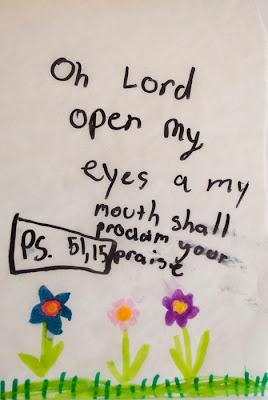 Oh Lord
open my
eyes a my
mouth shall
proclaim your
Ps. 51,15 praise